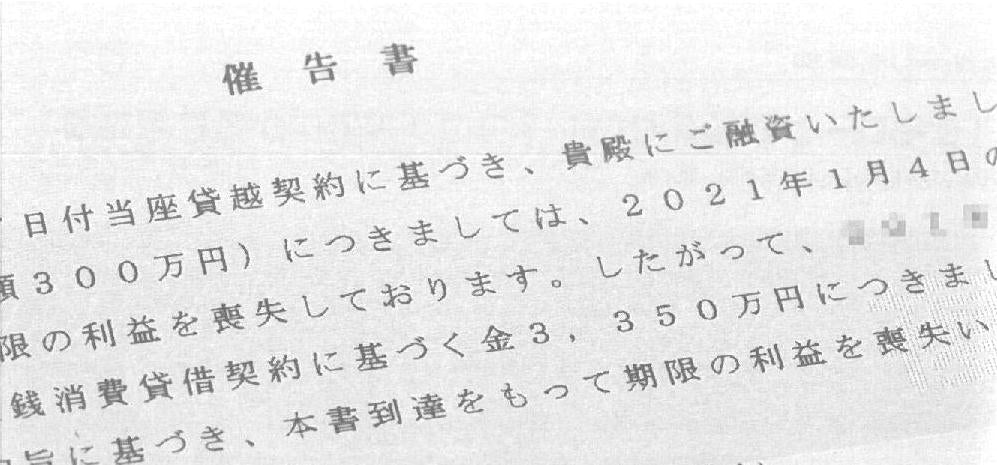 催告書
日付当座貸越契約に基づき、貴殿にご融資いたしまし
額300万円)につきましては、2021年1月4日の
限の利益を喪失しております。したがって、
銭消費貸借契約に基づく金3,350万円につきまし
旨に基づき、本書到達をもって期限の利益を喪失い